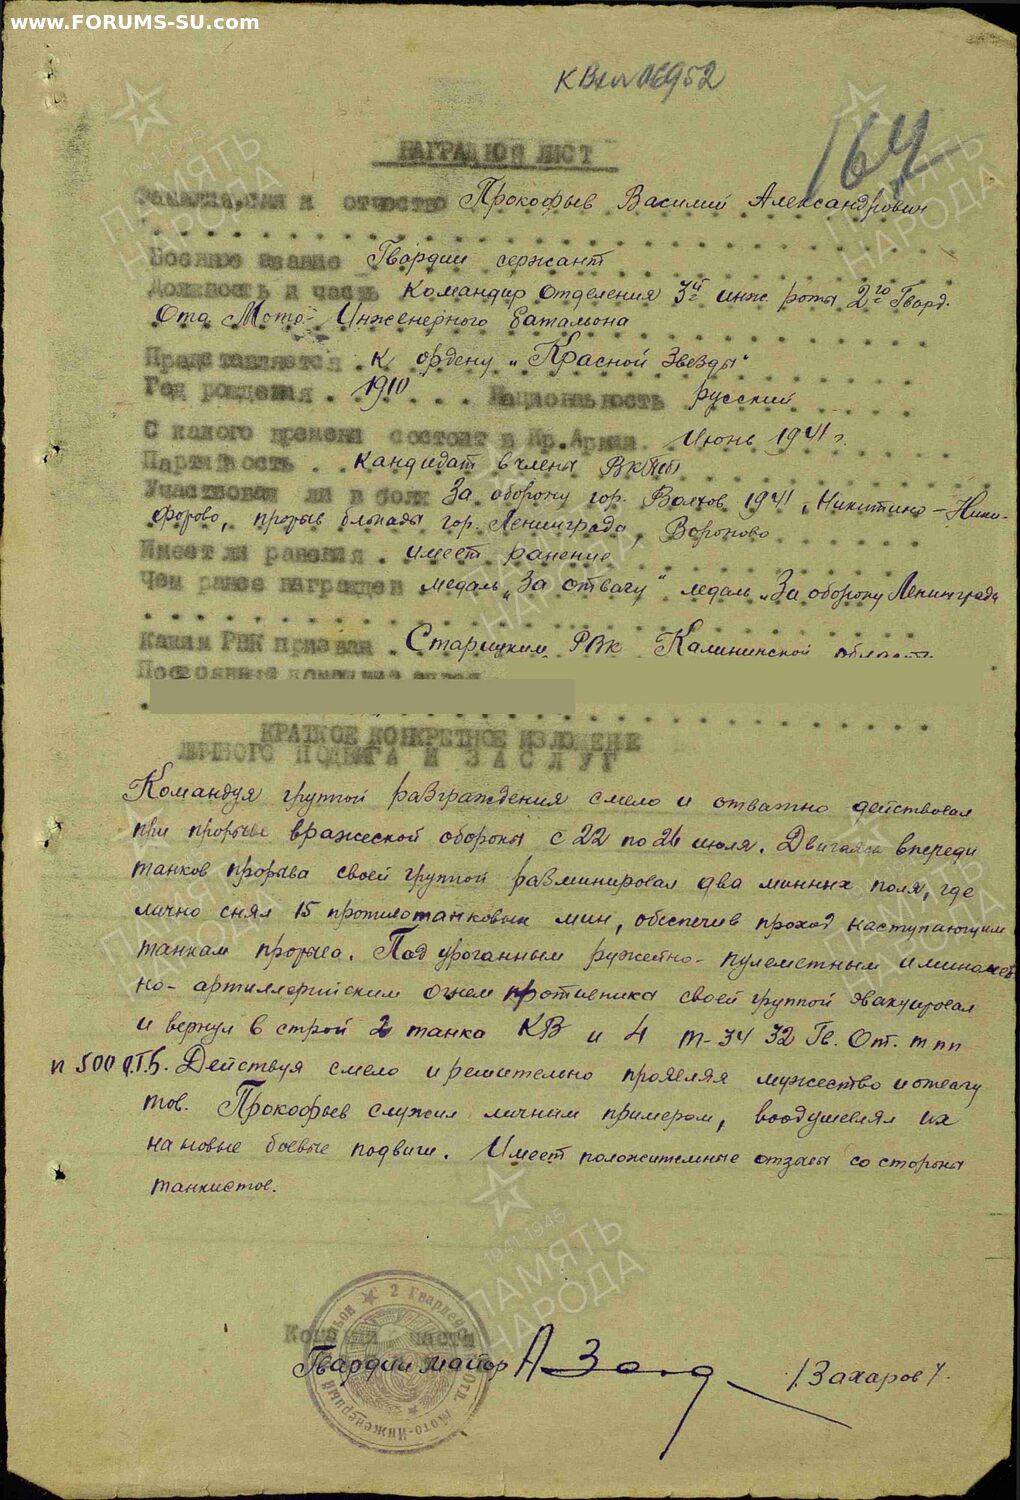 www.FORUMS-SU.com
К Вх № 06952
164
НАГРАДНОЙ ЛИСТ
Фамилия, имя и отчество Прокофьев Василий Александрович
Военное звание Гвардии сержант
Должность и часть Командир Отделения 3й инж роты 2го Гвард.
Отд Мото-Инженерного батальона
Представляется к ордену „Красной Звезды"
Год рождения 1910 Национальность русский
С какого времени состоит в Кр.Армии Июнь 1941 г.
Партийность кандидат в члены ВКПб
Участвовал ли в боях За оборону гор. Волхов 1941, Никитино-Ники-
форово, прорыв блокады гор. Ленинграда, Вороново
Имеет ли ранения имеет ранение
Чем ранее награжден медаль „За отвагу" медаль „За оборону Ленинграда
Каким РВК призван Старицким РВК Калининской области
КРАТКОЕ КОНКРЕТНОЕ ИЗЛОЖЕНИЕ
ЛИЧНОГО ПОДВИГА И ЗАСЛУГ
Командуя группой разграждения смело и отважно действовал
при прорыве вражеской обороны с 22 по 26 июля. Двигаясь впереди
танков прорыва своей группой разминировал два минных поля, где
лично снял 15 противотанковых мин, обеспечив проход наступающим
танкам прорыва. Под ураганным ружейно-пулеметным и миномет
но-артиллерийским огнем противника своей группой эвакуировал
и вернул в строй 2 танка КВ и 4 т-34 32 Гв. От. тпп
и 500 О.Т.Б. Действуя смело и решительно проявляя мужество и отвагу
тов. Прокофьев служил личным примером, воодушевлял их
на новые боевые подвиги. Имеет положительные отзывы со стороны
танкистов.
Гвардии майор
/Захаров/
1941-1945
ПАМЯТЬ
НАРОДА